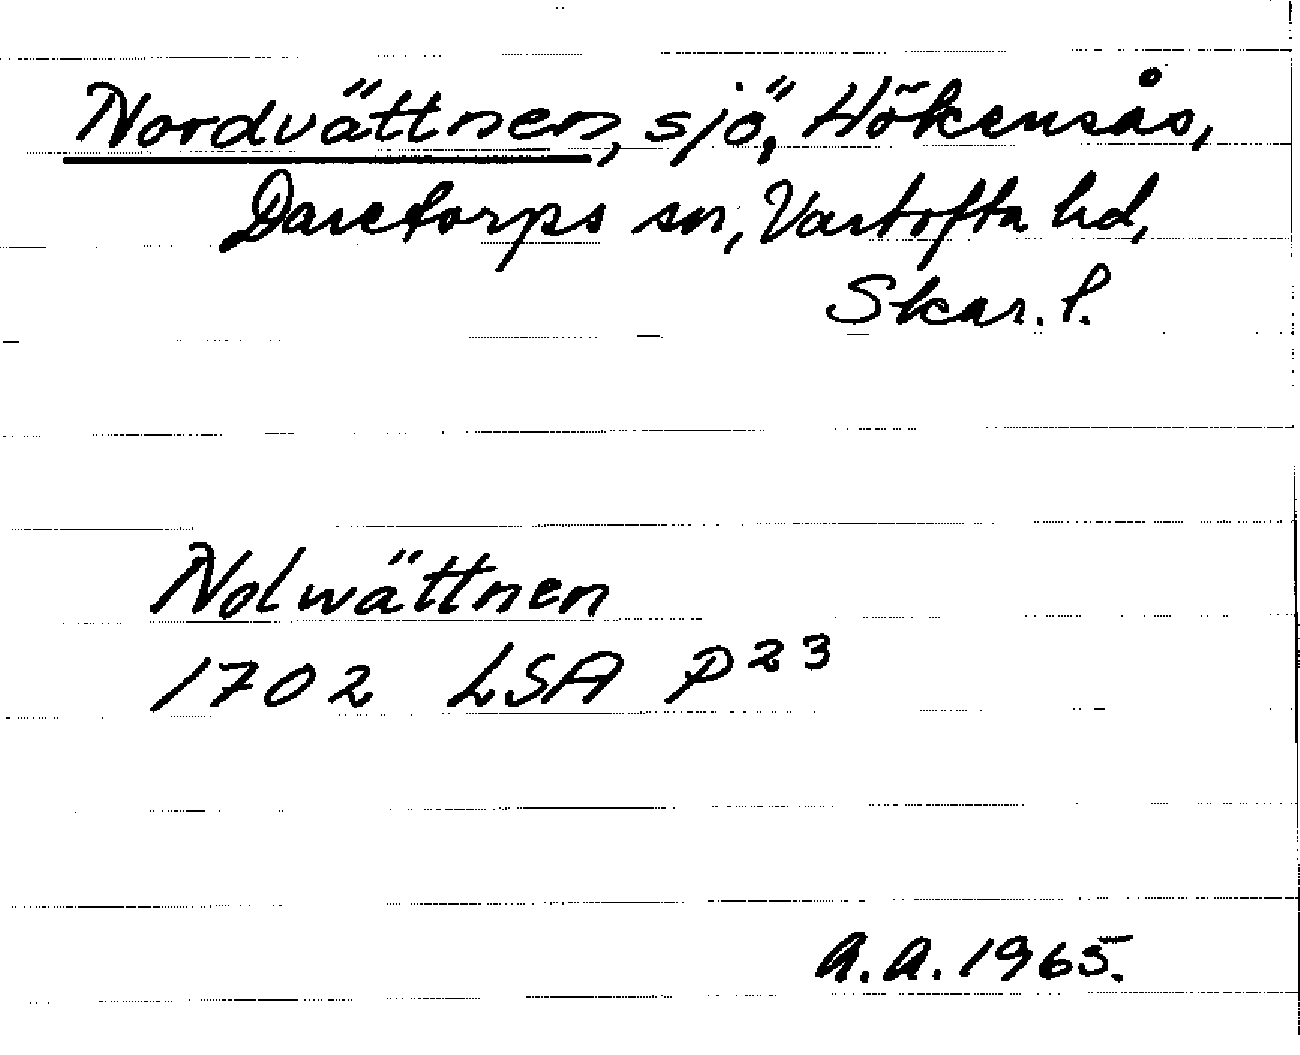 Nordvättnen, sjö, Hökensås,
Daretorps sn, Vartofta hd,
Skar. l.
Nolwättnen
1702 LSA P23
A.A. 1965.